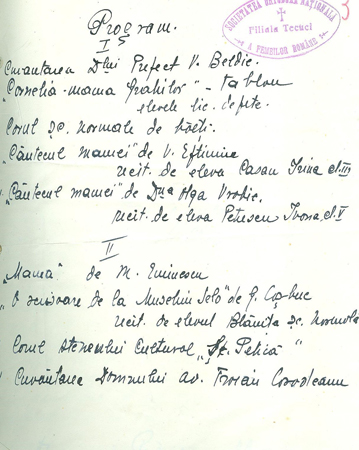 Program.
SOCIETATEA ORTODOXĂ NAȚIONALĂ
Filiala Tecuci
A FEMEILOR ROMÂNE
3
I
Cuvântarea Dlui Prefect V. Beldie.
"Cornelia-mama Grahilor" - tablou
elevele lic. de fete.
Corul șc. normale de băeți.
"Cântecul mamei" de V. Eftimiu
recit. de eleva Casan Irina cl. III
"Cântecul mamei" de Dna Olga Vrabie,
recit. de eleva Petrescu Ivona, cl. V
II
"Mama" de M. Eminescu
"O scrisoare de la Muselim Selo" de G. Coșbuc
recit. de elevul Blăniță șc. Normolă
Corul Ateneului Cultural "Șt. Petică"
Cuvântarea Domnului av. Troian